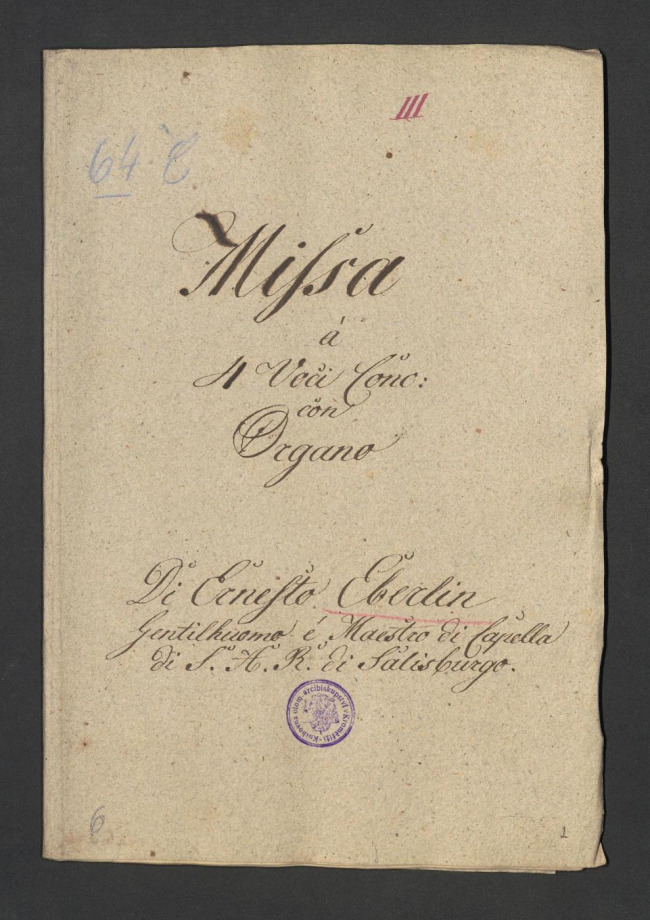 III
64 C
Miſsa
á
4 Voci Conc:
con
Organo
Di Erneſto Eberlin
Gentilhuomo é Maestro di Capella
di S. A. R. di Salisburgo.
Knihovna olom. arcibiskupství · Kroměříž ·
6
1